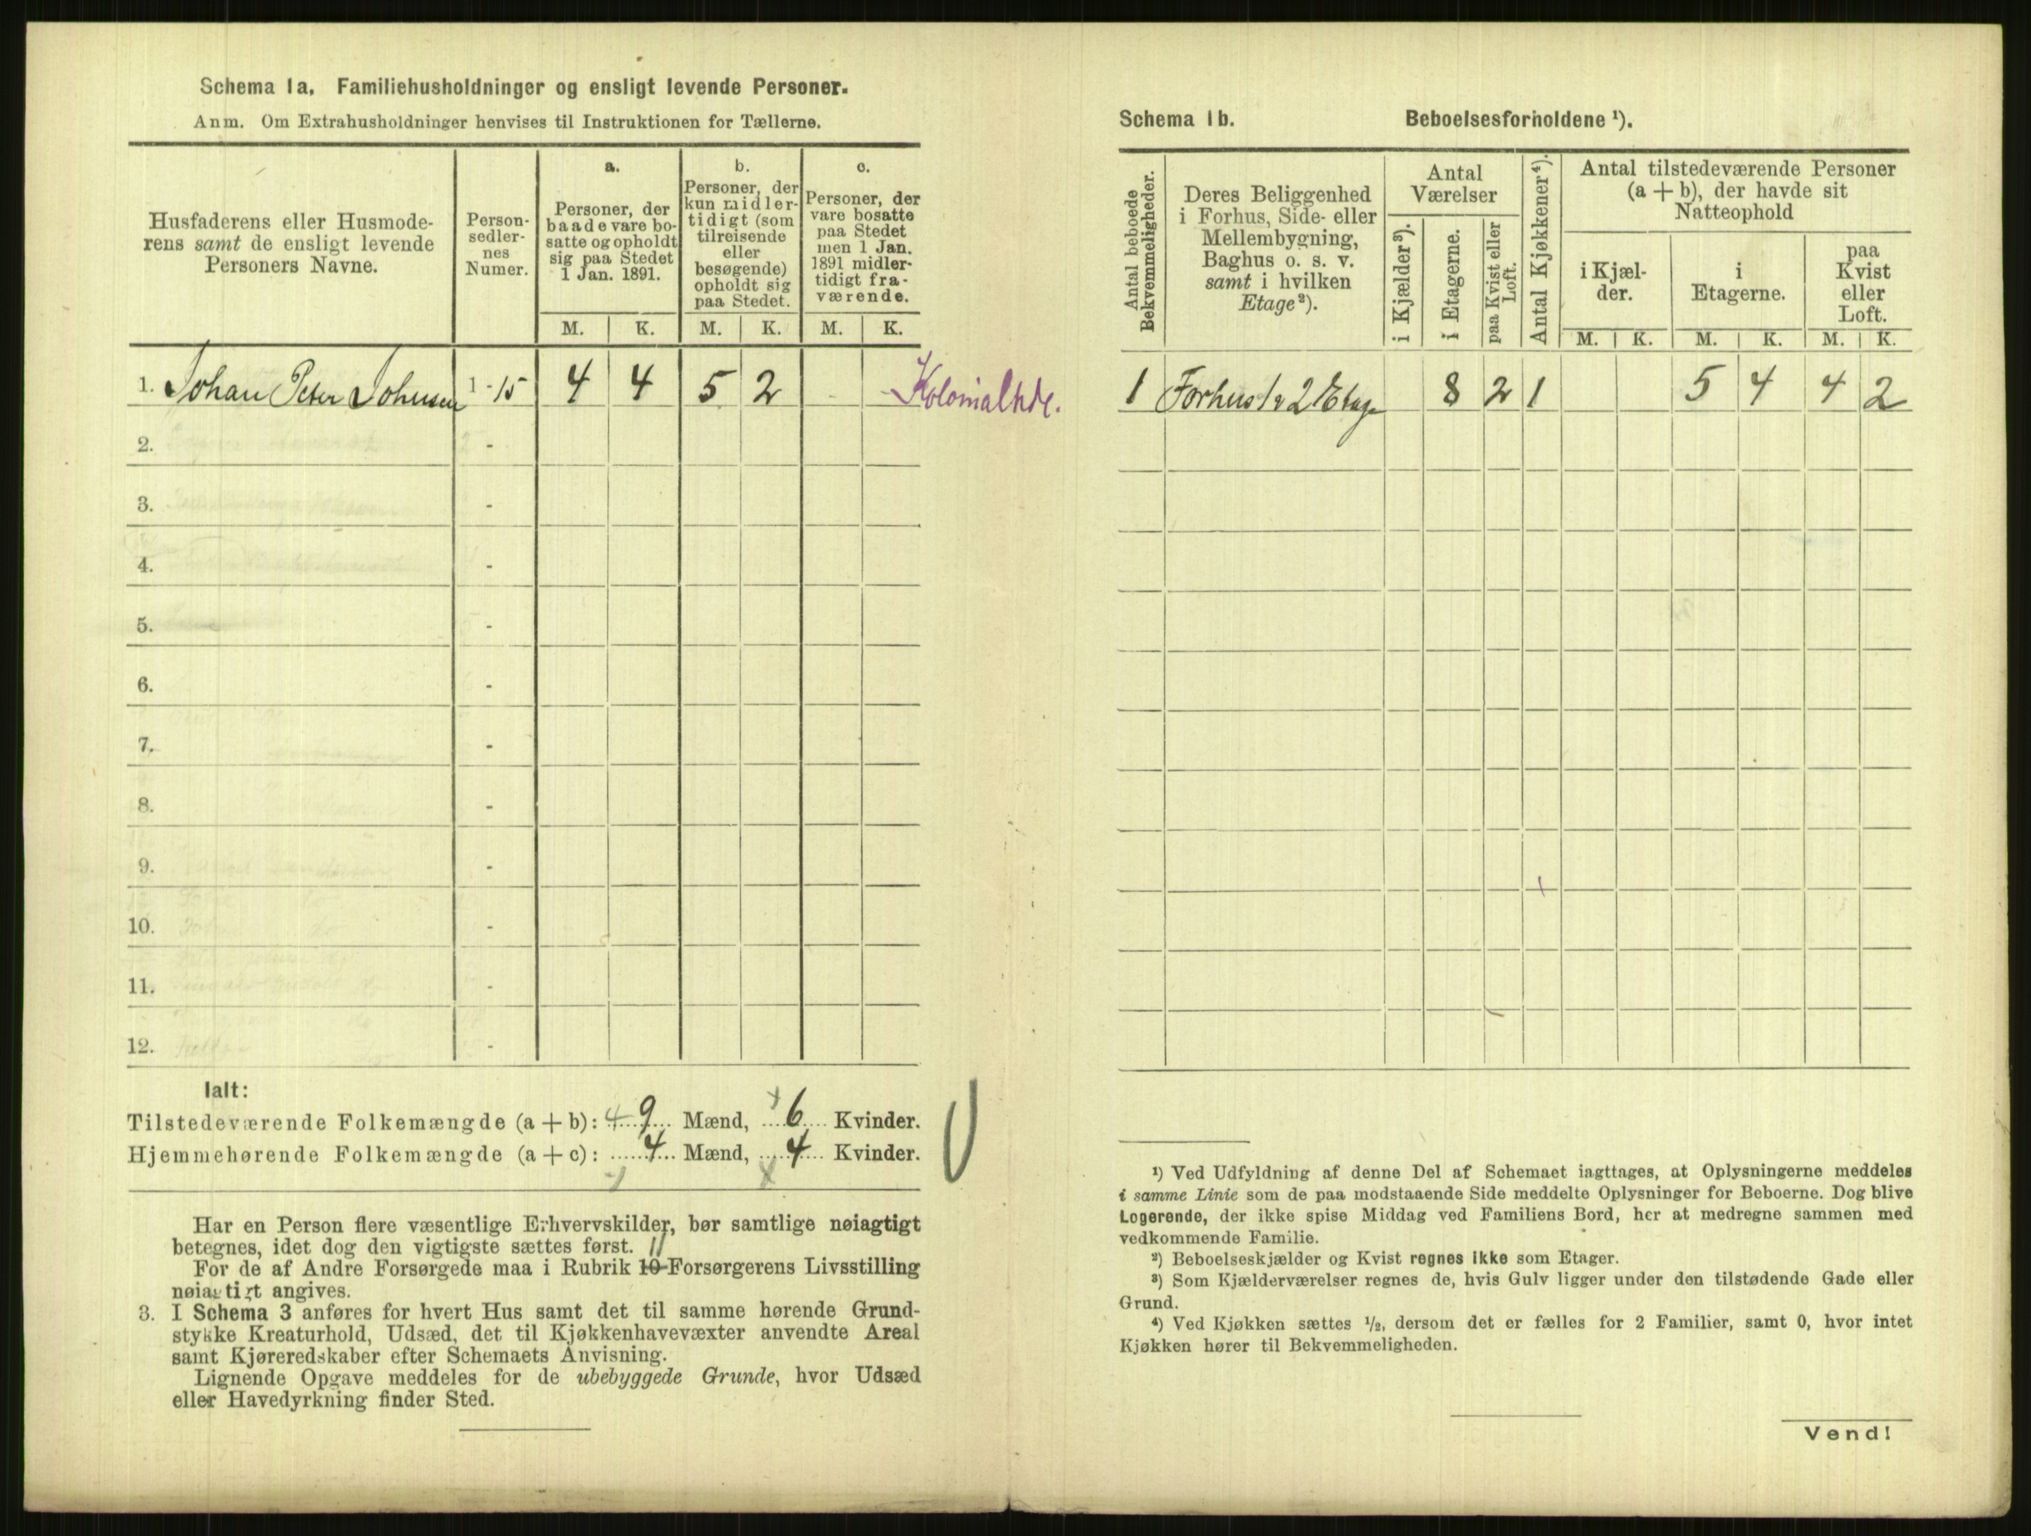 Schema 1a. Familiehusholdninger og ensligt levende Personer.
Anm. Om Extrahusholdninger henvises til Instruktionen for Tællerne.
Husfaderens eller Husmode-
rens samt de ensligt levende
Personers Navne.
Person-
sedler-
nes
Numer.
a.
Personer, der
baade vare bo-
satte og opholdt
sig paa Stedet
1 Jan. 1891.
b.
Personer, der
kun midler-
tidigt (som
tilreisende
eller
besøgende)
opholdt sig
paa Stedet.
c.
Personer, der
vare bosatte
paa Stedet
men 1 Jan.
1891 midler-
tidigt fra-
værende.
M. K. M. K. M. K.
1. Johan Peter Johnsen 1 - 15 4 4 5 2 Kolonialhdl.
2. -
3. -
4. -
5. -
6. -
7. -
8. -
9. -
10. -
11. -
12. -
Ialt:
Tilstedeværende Folkemængde (a + b): 4 9 Mænd, 6 Kvinder.
Hjemmehørende Folkemængde (a + c): 4 Mænd, 4 Kvinder.
Har en Person flere væsentlige Erhvervskilder, bør samtlige nøiagtigt
betegnes, idet dog den vigtigste sættes først. 11
For de af Andre Forsørgede maa i Rubrik 10 Forsørgerens Livsstilling
nøiagtigt angives.
3. I Schema 3 anføres for hvert Hus samt det til samme hørende Grund-
stykke Kreaturhold, Udsæd, det til Kjøkkenhavevæxter anvendte Areal
samt Kjøreredskaber efter Schemaets Anvisning.
Lignende Opgave meddeles for de ubebyggede Grunde, hvor Udsæd
eller Havedyrkning finder Sted.
Schema 1b. Beboelsesforholdene ¹).
Antal beboede
Bekvemmeligheder.
Deres Beliggenhed
i Forhus, Side- eller
Mellembygning,
Baghus o. s. v.
samt i hvilken
Etage²).
Antal
Værelser
i Kjælder³).
i Etagerne.
paa Kvist eller
Loft.
Antal Kjøkkener⁴).
Antal tilstedeværende Personer
(a + b), der havde sit
Natteophold
i Kjæl-
der.
i
Etagerne.
paa
Kvist
eller
Loft.
M. K. M. K. M. K.
1 Forhus 1 2 Etage 8 2 1 5 4 4 2
¹) Ved Udfyldning af denne Del af Schemaet iagttages, at Oplysningerne meddeles
i samme Linie som de paa modstaaende Side meddelte Oplysninger for Beboerne. Dog blive
Logerende, der ikke spise Middag ved Familiens Bord, her at medregne sammen med
vedkommende Familie.
²) Beboelseskjælder og Kvist regnes ikke som Etager.
³) Som Kjælderværelser regnes de, hvis Gulv ligger under den tilstødende Gade eller
Grund.
⁴) Ved Kjøkken sættes ½, dersom det er fælles for 2 Familier, samt 0, hvor intet
Kjøkken hører til Bekvemmeligheden.
Vend!